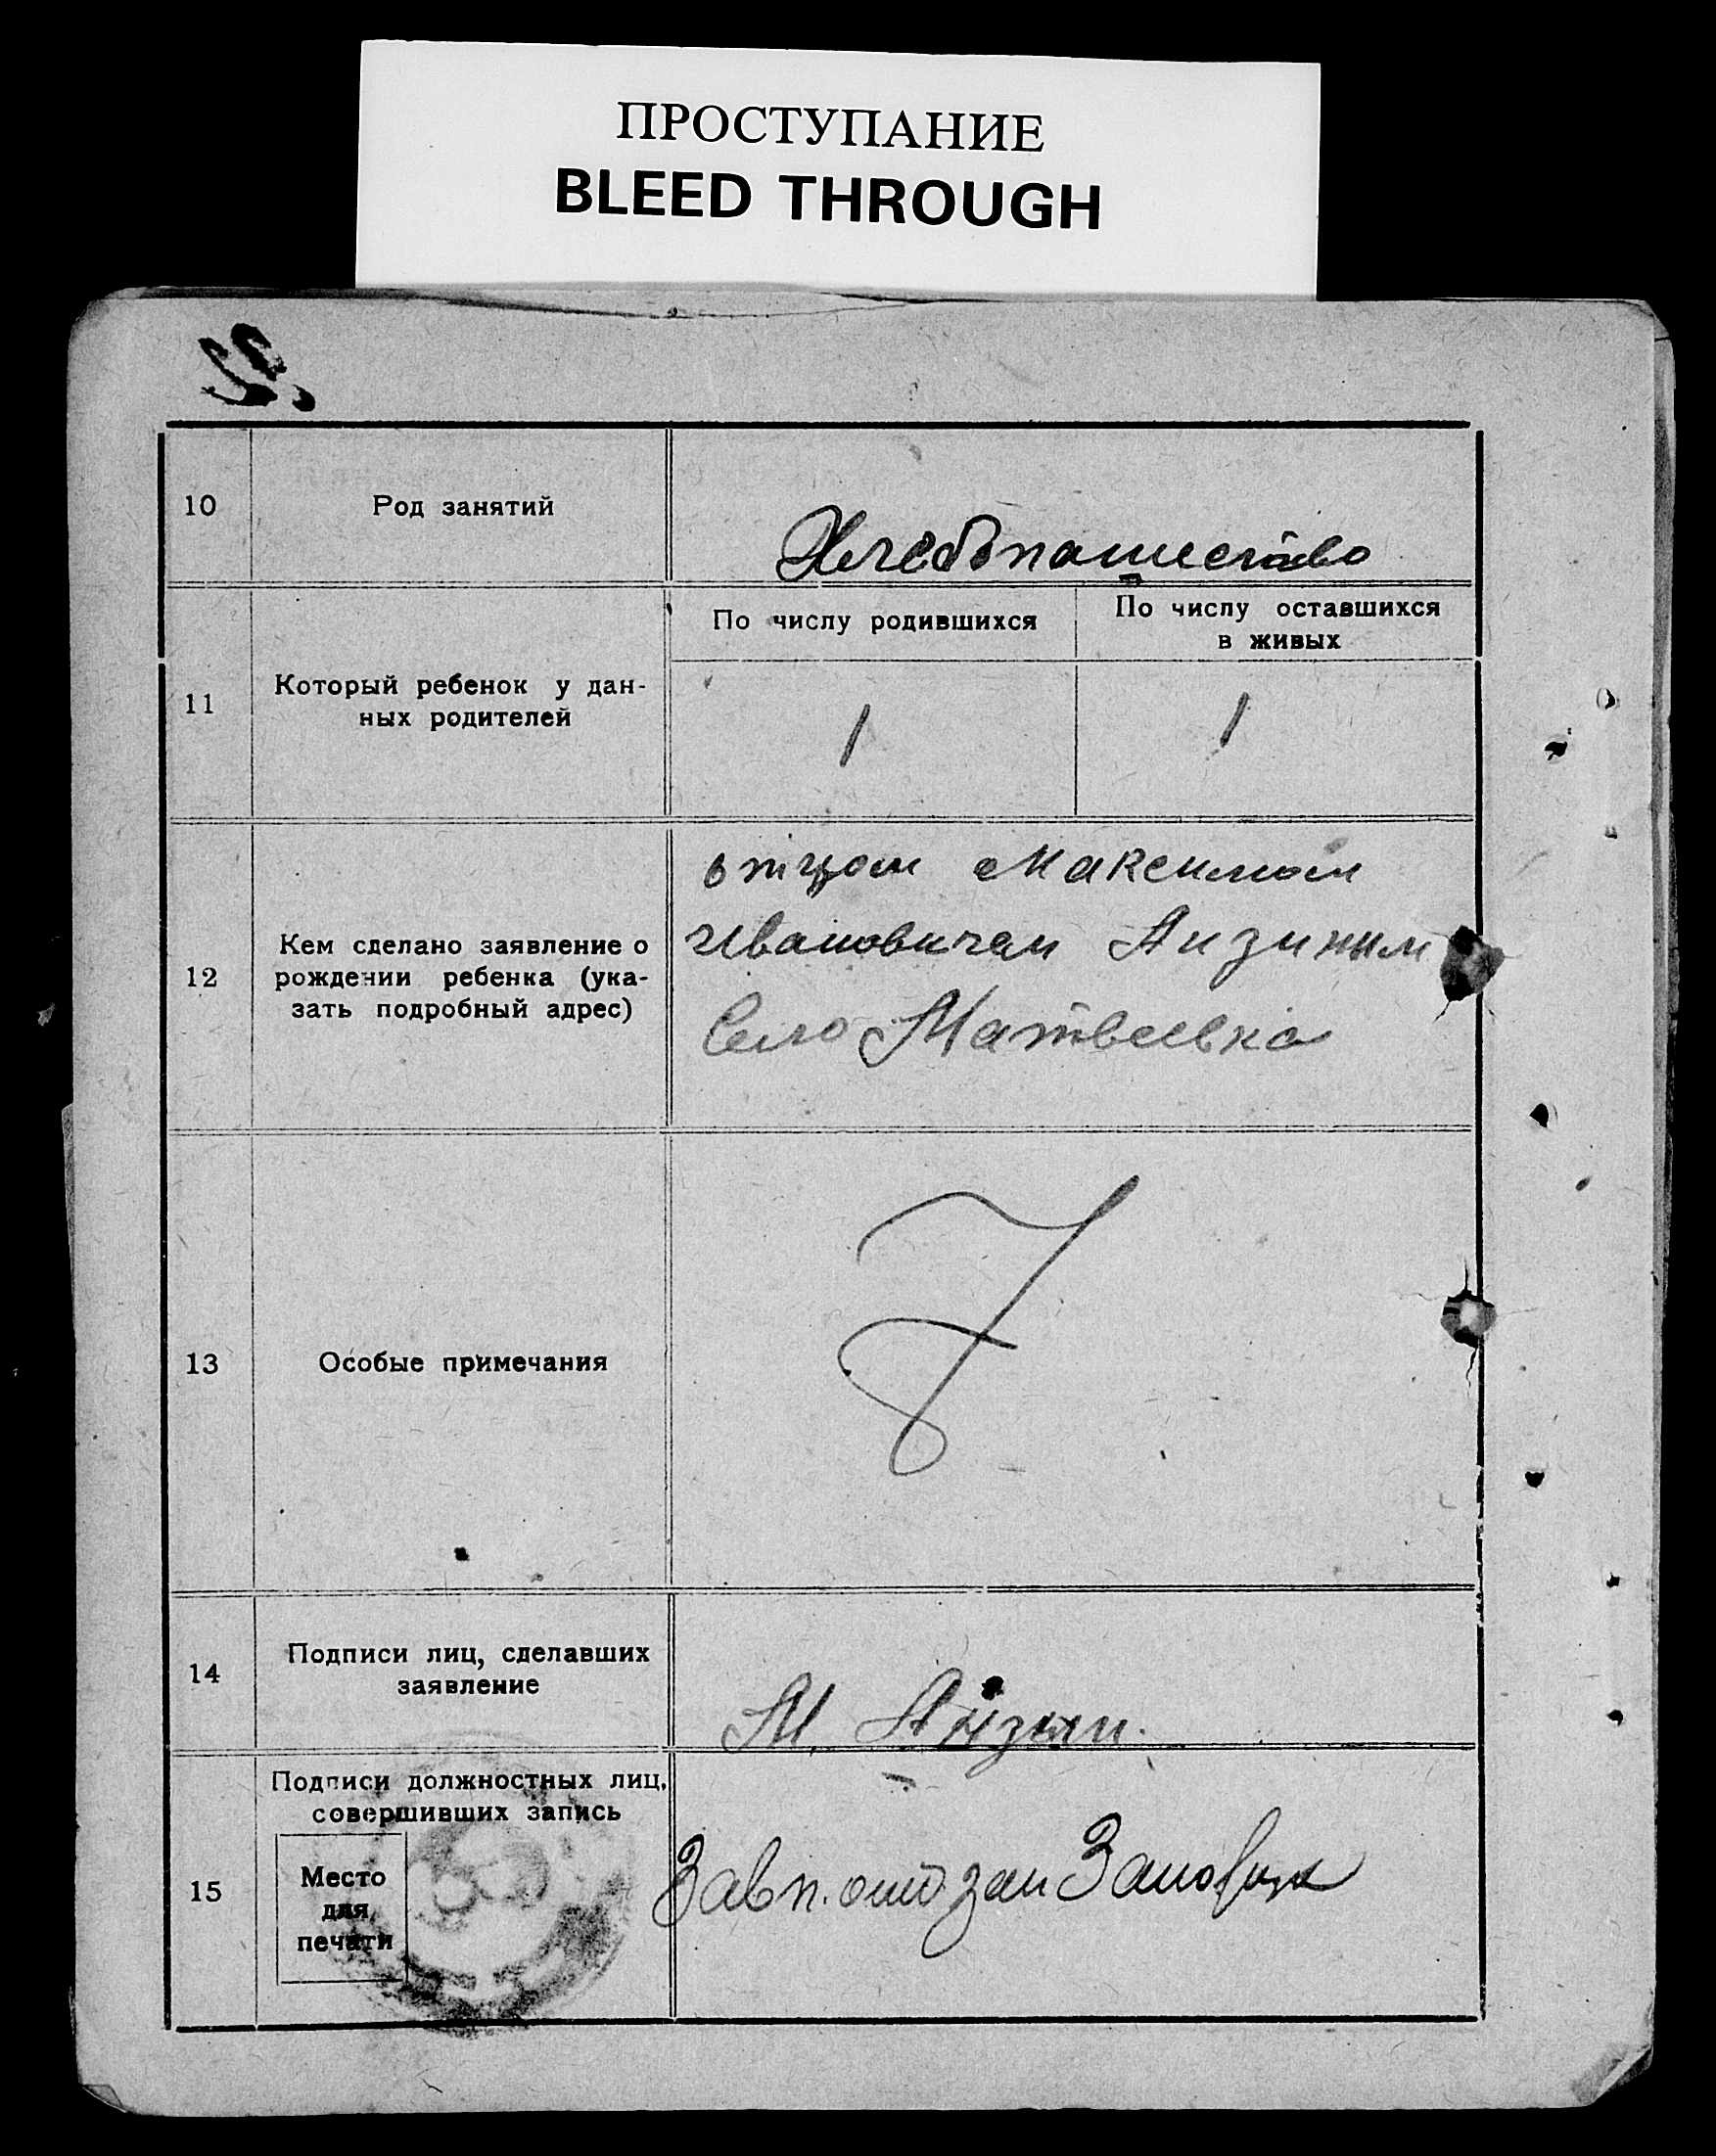 ПРОСТУПАНИЕ
BLEED THROUGH
10
Род занятий
Хлебопашество
11
Который ребенок у дан-
ных родителей
По числу родившихся
По числу оставшихся
в живых
1
1
12
Кем сделано заявление о
рождении ребенка (ука-
зать подробный адрес)
отцом Максимом
Ивановичем Анзиным
Село Матвеевка
13
Особые примечания
14
Подписи лиц, сделавших
заявление
М. Анзин.
15
Подписи должностных лиц,
совершивших запись
Место
для
печати